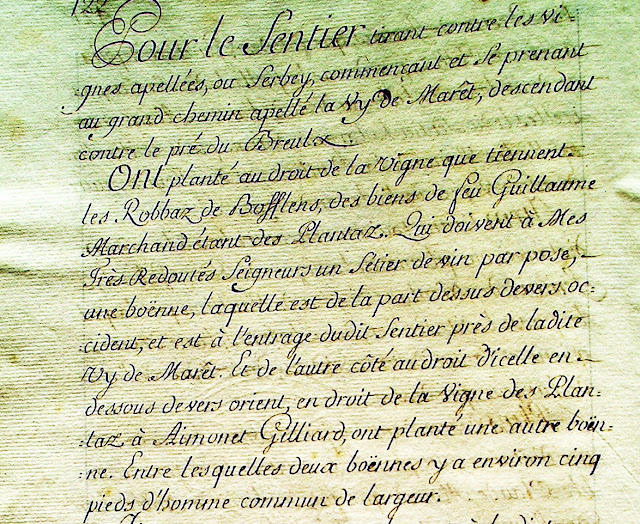 122
Pour le Sentier tirant contre les vi-
gnes apellées, ou Serbey, commençant et se prenant
au grand chemin apellé la Vy de Marêt, descendant
contre le pré du Breulx.
Ont planté au droit de la Vigne que tiennent
les Robbaz de Bofflens, des biens de feu Guillaume
Marchand étant des Plantaz. Qui doivent à Mes
Très Redoutés Seigneurs un Setier de vin par pose,
une boënne, laquelle est de la part dessus devers oc-
cident, et est à l'entrage dudit Sentier près de ladite
Vy de Marêt. Et de l'autre côté au droit d'icelle en-
dessous devers orient, en droit de la Vigne des Plan-
taz à Aimonet Gilliard, ont planté une autre boën-
ne. Entre lesquelles deux boënnes y a environ cinq
pieds d'homme commun de largeur.